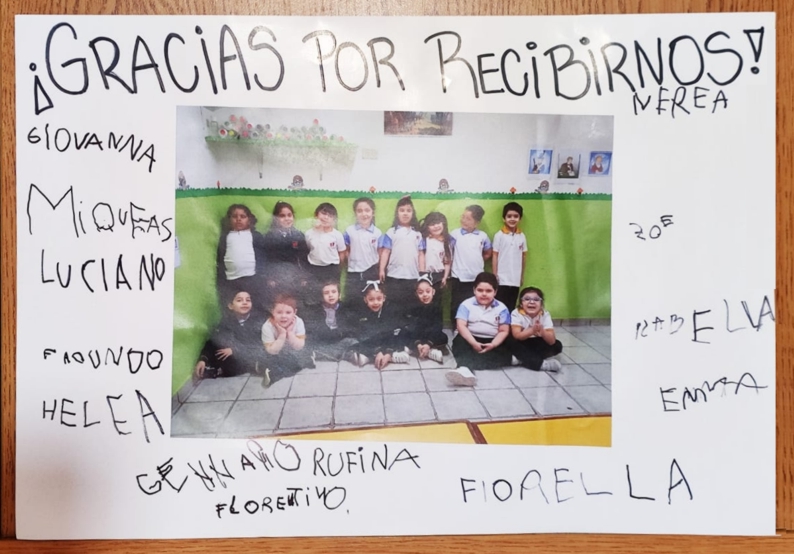 ¡GRACIAS POR RECIBIRNOS!
NEREA
GIOVANNA
MIQUEAS
ZOE
LUCIANO
FAUNDO
HELEA
EMMA
GENNARO RUFINA
FLORENTINO.
FIORELLA